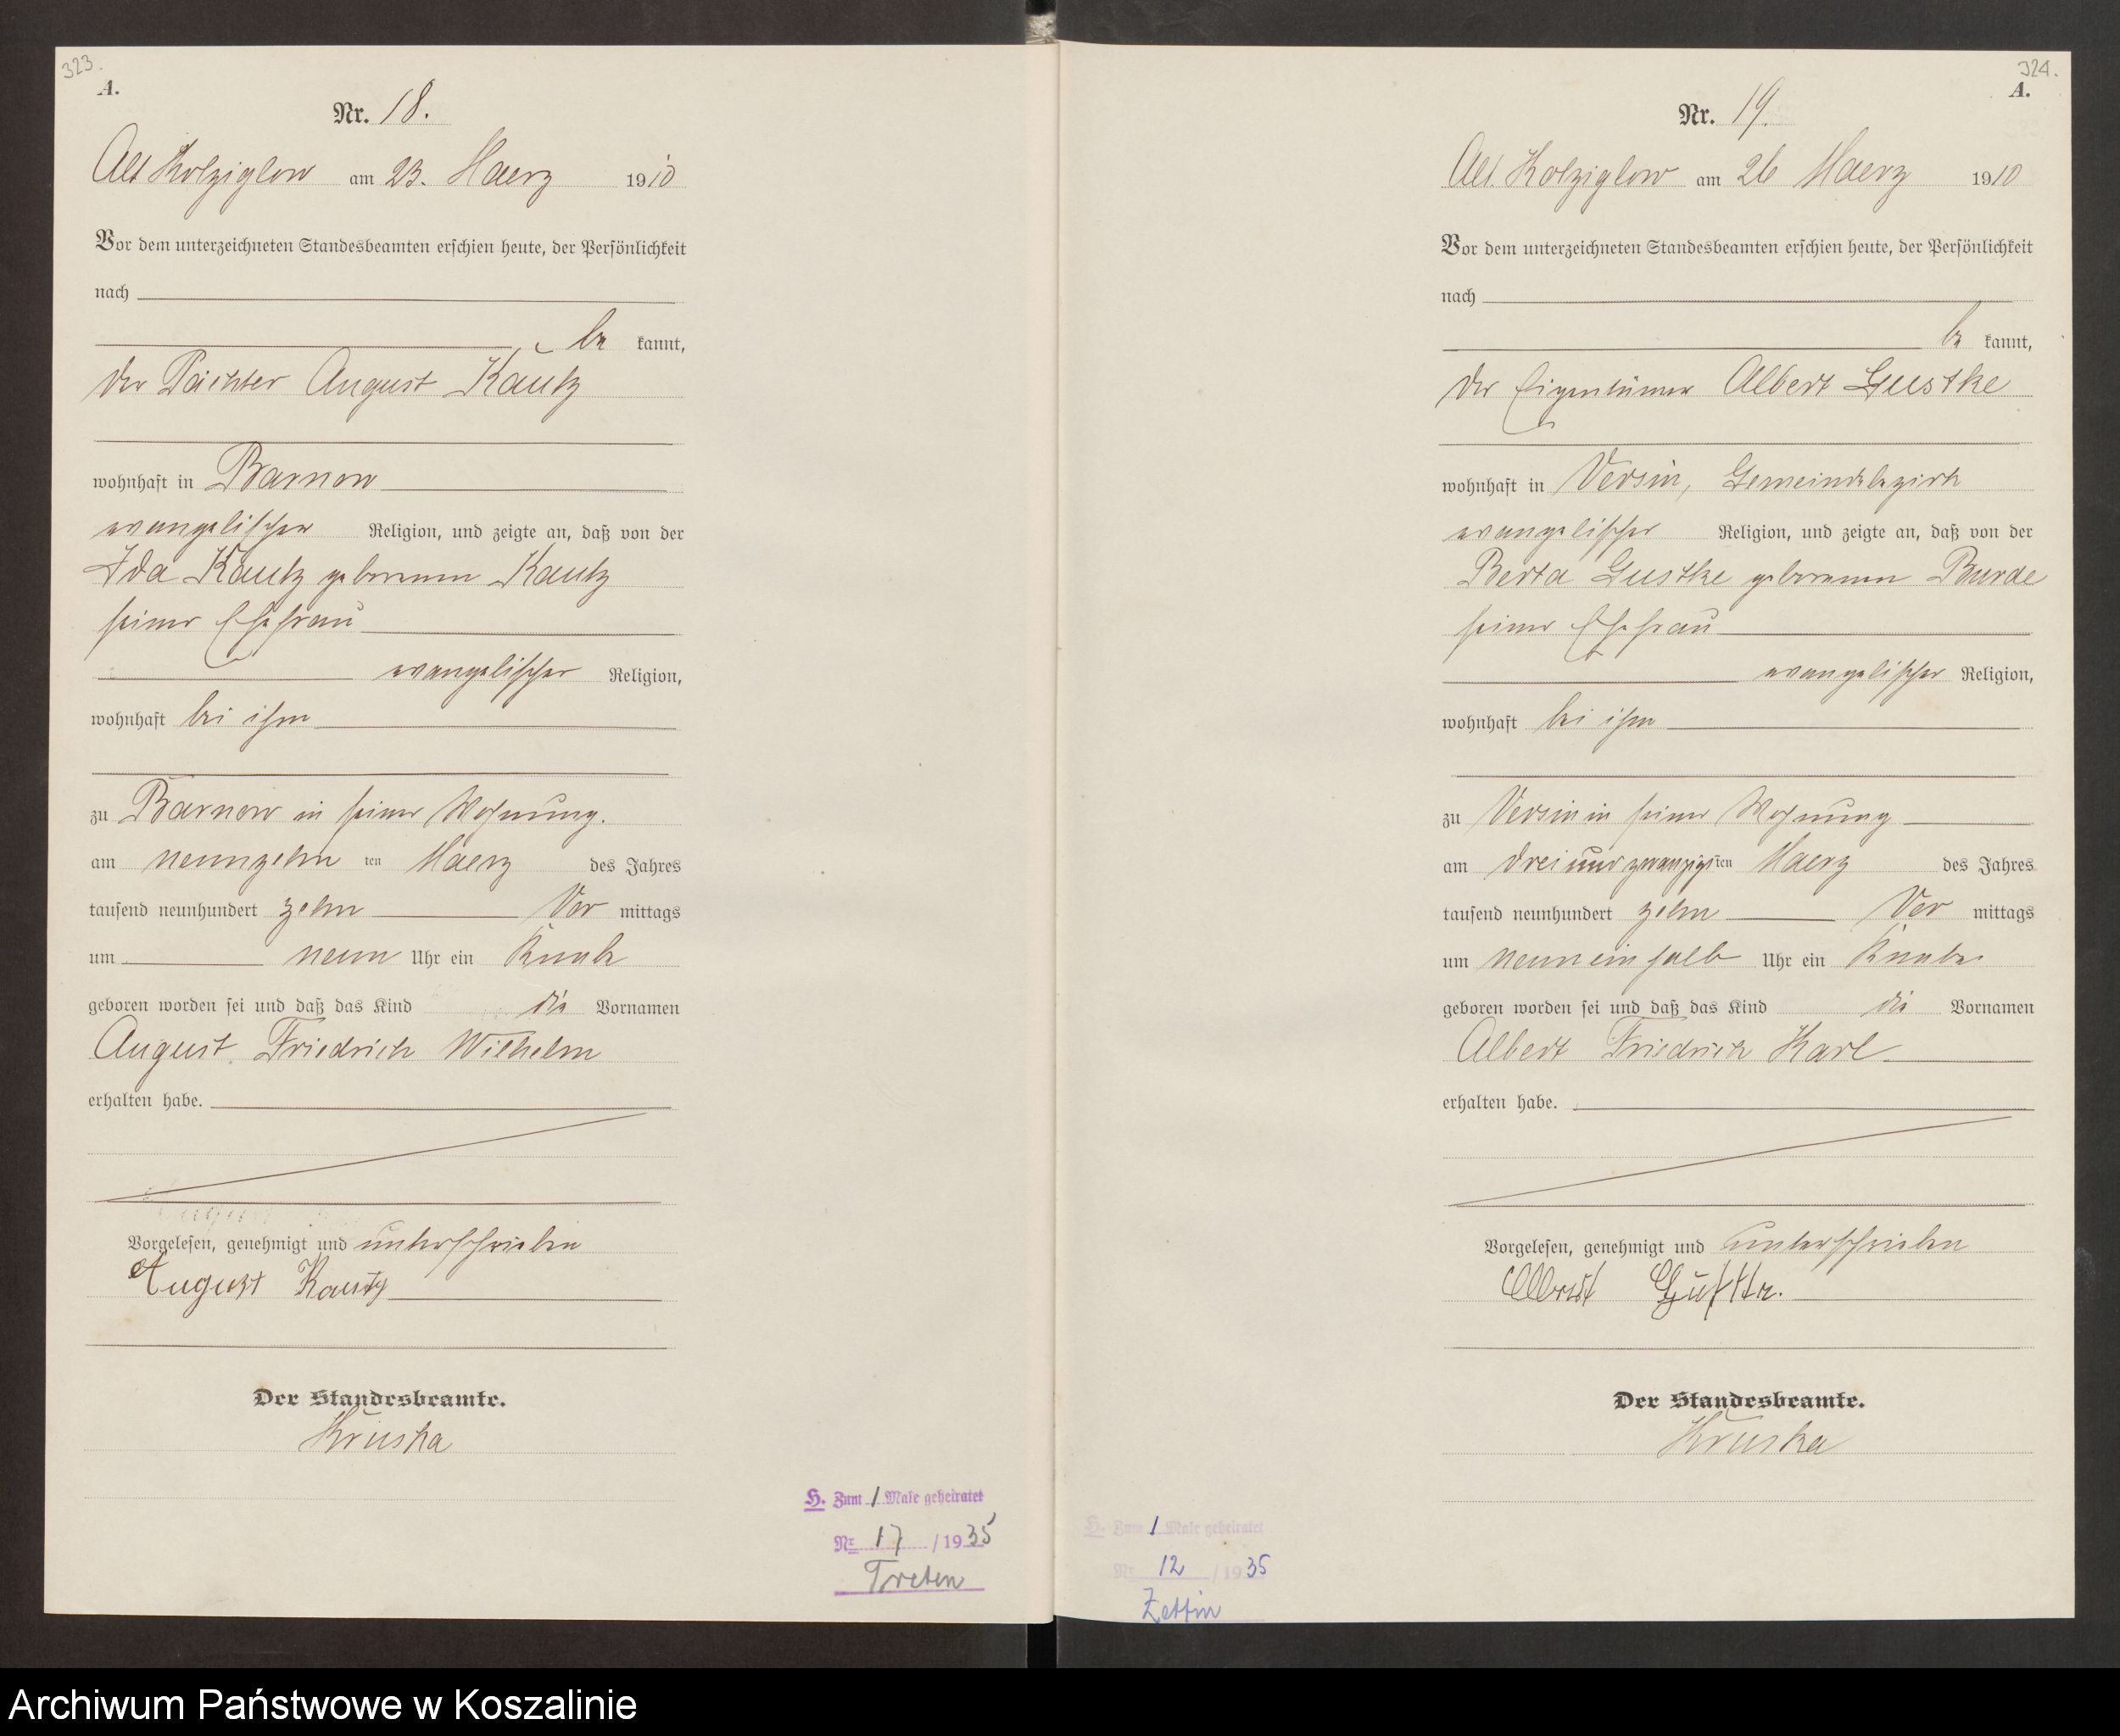 323.
A.
Nr. 18.
Alt Kolziglow am 23. Maerz 1910
Vor dem unterzeichneten Standesbeamten erschien heute, der Persönlichkeit
nach
be kannt,
der Pächter August Kautz
wohnhaft in Barnow
evangelischer Religion, und zeigte an, daß von der
Ida Kautz geborenen Kautz
seiner Ehefrau
evangelischer Religion,
wohnhaft bei ihm
zu Barnow in seiner Wohnung.
am neunzehn ten Maerz des Jahres
tausend neunhundert zehn Vor mittags
um neun Uhr ein Knabe
geboren worden sei und daß das Kind die Vornamen
August Friedrich Wilhelm
erhalten habe.
Vorgelesen, genehmigt und unterschrieben
August Kautz
Der Standesbeamte.
Kruska
H. Zum 1 Male geheiratet
Nr 17 / 1935
Treten
324.
A.
Nr. 19.
Alt. Kolziglow am 26 Maerz 1910
Vor dem unterzeichneten Standesbeamten erschien heute, der Persönlichkeit
nach
be kannt,
der Eigentümer Albert Gustke
wohnhaft in Versin, Gemeindebezirk
evangelischer Religion, und zeigte an, daß von der
Berta Gustke geborenen Burde
seiner Ehefrau
evangelischer Religion,
wohnhaft bei ihm
zu Versin in seiner Wohnung
am dreiundzwanzigsten Maerz des Jahres
tausend neunhundert zehn Vor mittags
um neuneinhalb Uhr ein Knabe
geboren worden sei und daß das Kind die Vornamen
Albert Friedrich Karl
erhalten habe.
Vorgelesen, genehmigt und unterschrieben
Albert Gustke.
Der Standesbeamte.
Kruska
H. Zum 1 Male geheiratet
Nr. 12 / 1935
Zettin
Archiwum Państwowe w Koszalinie